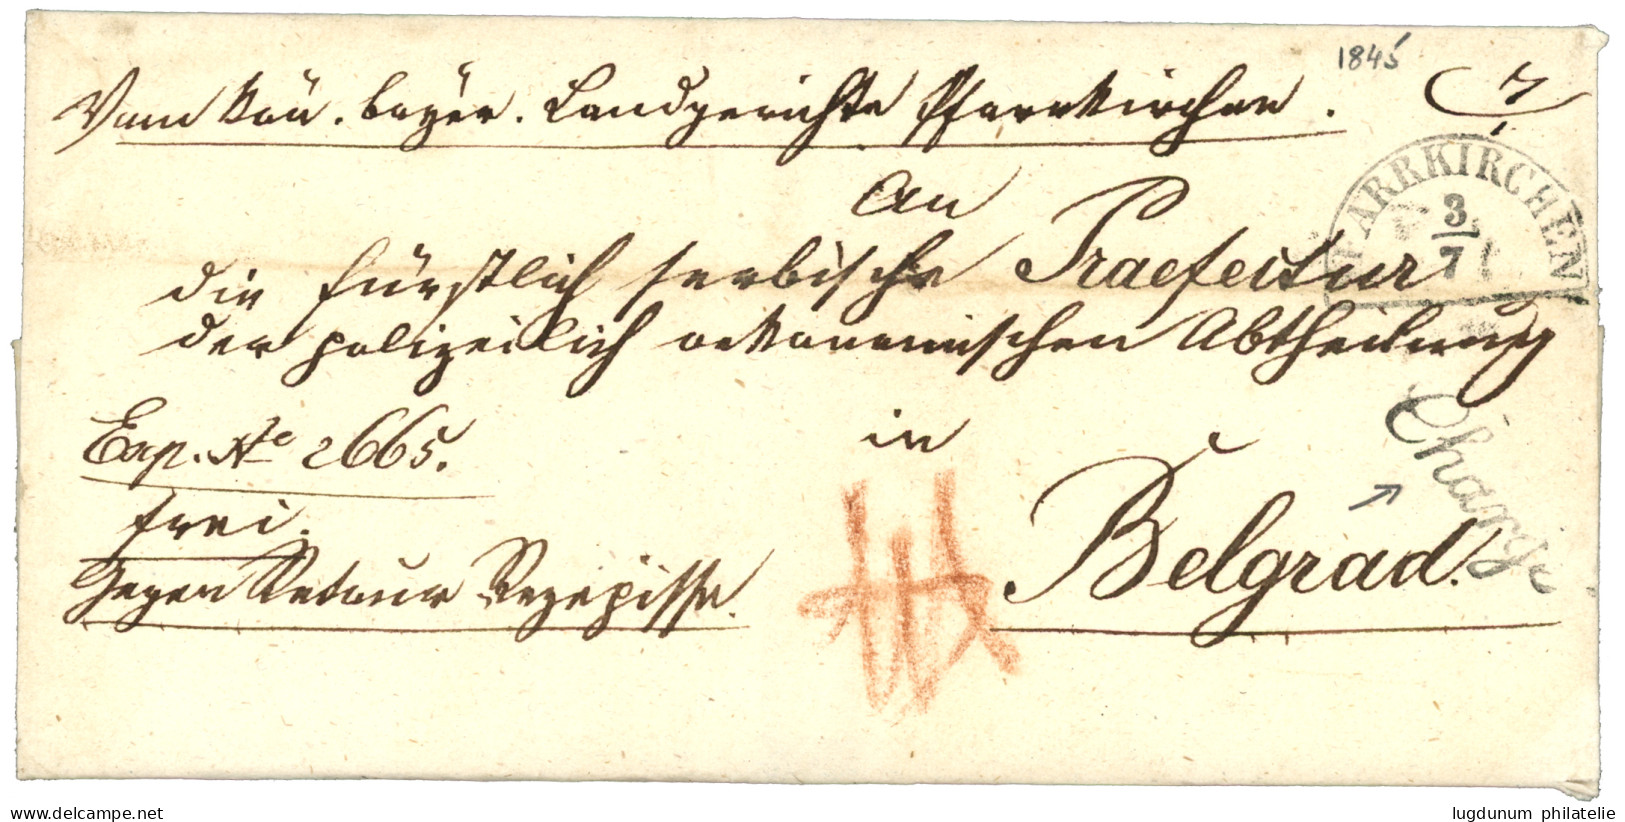 1845
Vom kön. bayer. Landgerichte Pfarrkirchen.
PFARRKIRCHEN
3
7
An
die fürstlich serbische Praefectur
der polizeilich oekonomischen Abtheilung
in
Belgrad.
Chargé
Exp. No 2665.
frei.
Gegen Retour Rezepisse.
delcampe.net
lugdunum philatelie